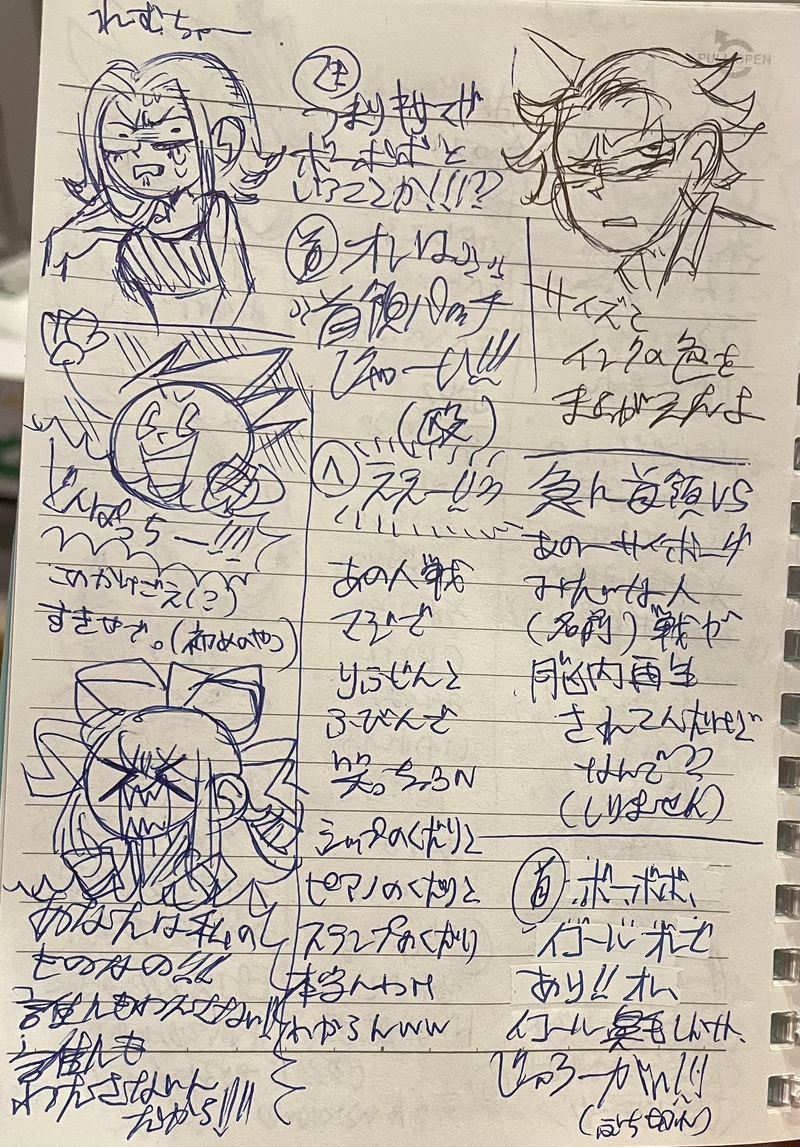 れむちゃー
つまりキサマが
ボーボボと
いうことか!!!??
首 オレは……
首領パッチ
じゃーい!!!
(殴)
へ ええー!!?
サイズと
インクの色を
まちがえたよ
どんぱっちー!!!!
このかけごえ(?)
すきやで。(初めのやつ)
あの人戦
マジで
りふじんと
ふびんで
笑っちゃうN
ラップのくだりと
ピアノのくだりと
スタンプのくだり
本当んわけ
わからんww
急に首領VS
あのーサイボーグ
みたいな人
(名前)戦が
脳内再生
されてんだけど
なんで??
(しりません)
は私の
ものなの!!!
誰にもわたさない!!
誰にも
わたさないん
だから!!!!
首 ボーボボ、
イコールオレで
あり!! オレ、
イコール鼻毛しんけん、
じゃろーがい!!
PULL OPEN